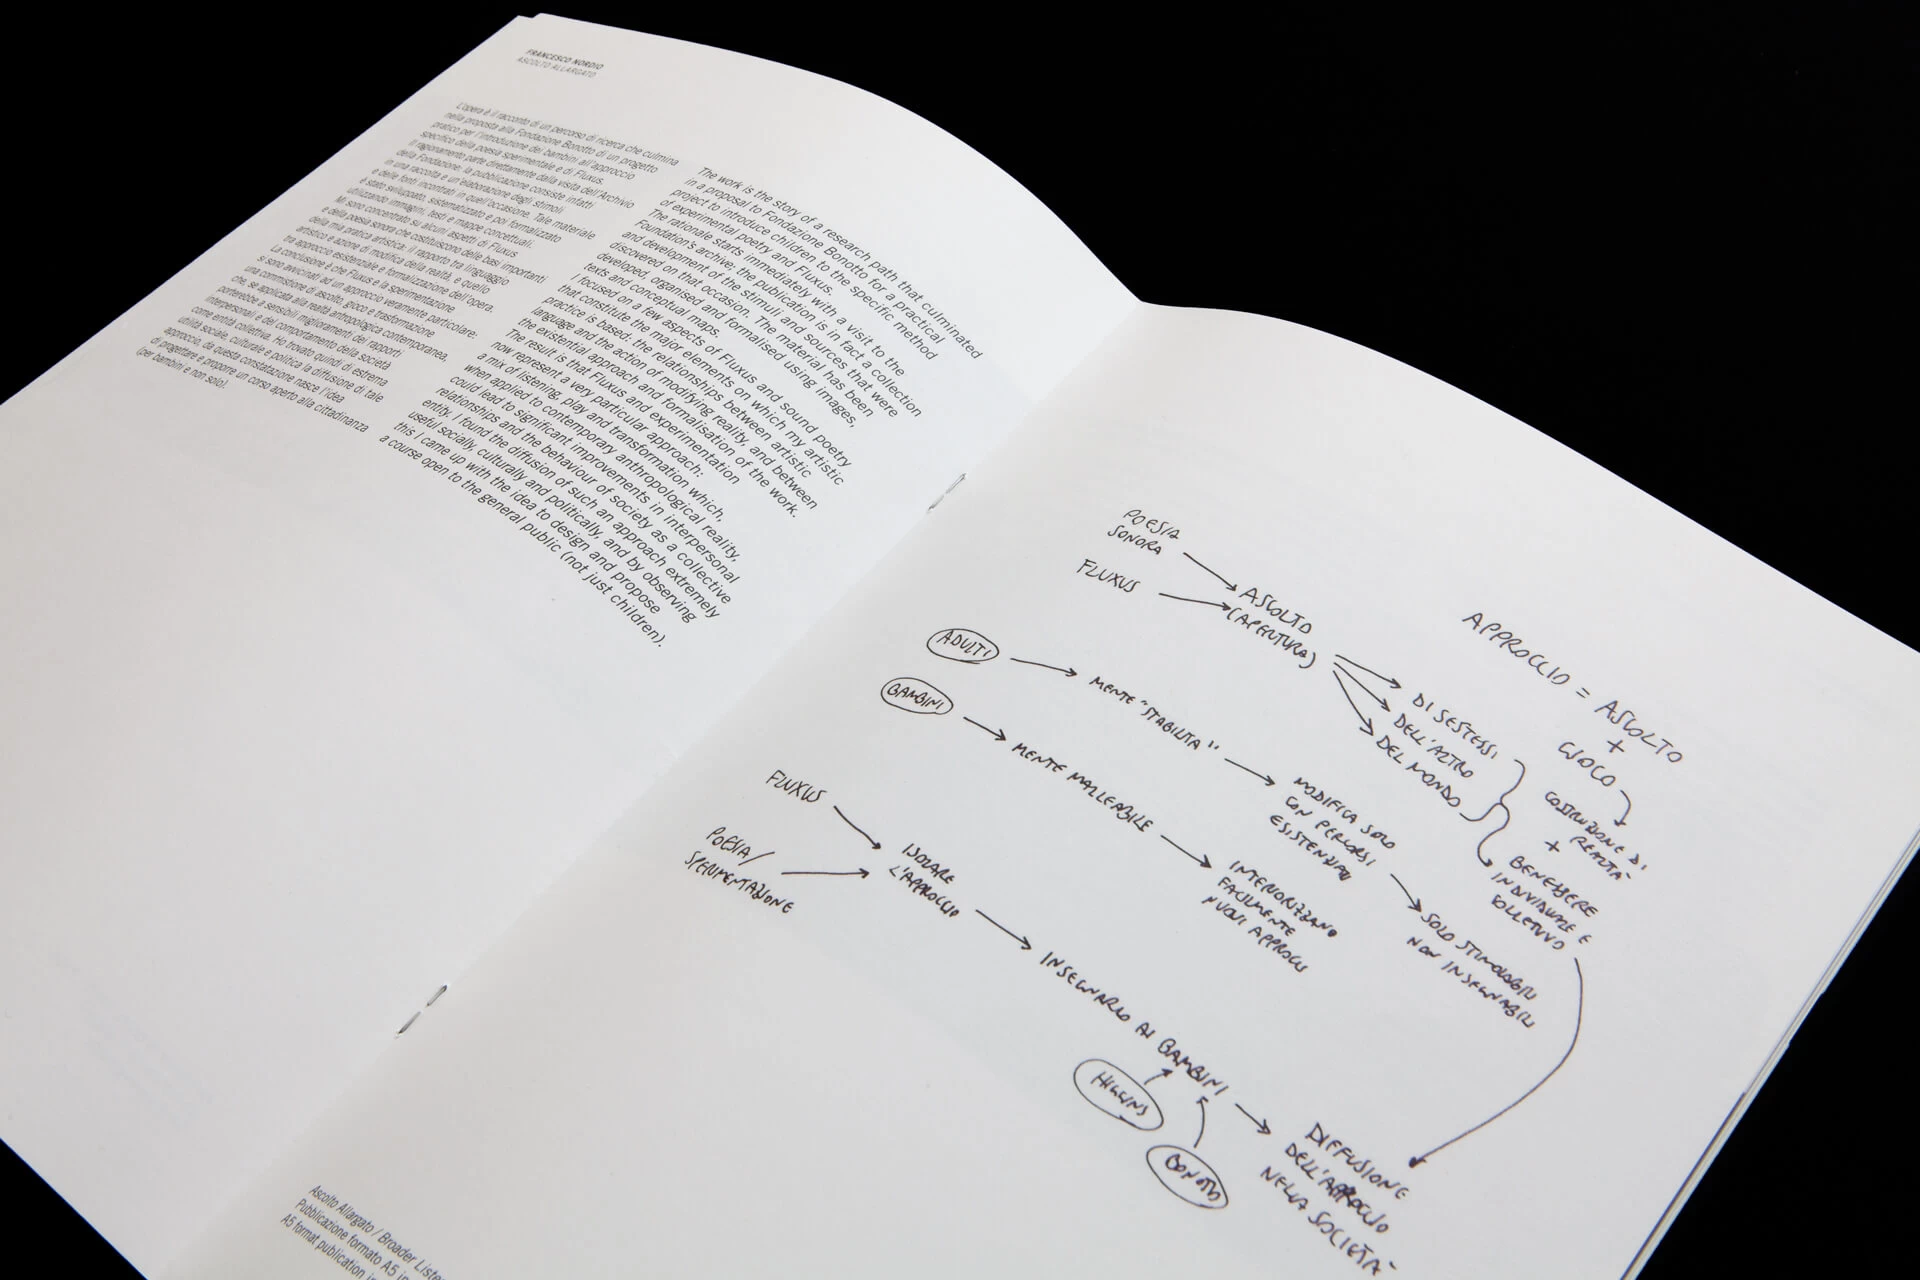 FRANCESCO NORDIO
ASCOLTO ALLARGATO
L'opera è il racconto di un percorso di ricerca che culmina
nella proposta alla Fondazione Bonotto di un progetto
pratico per l'introduzione dei bambini all'approccio
specifico della poesia sperimentale e di Fluxus.
Il ragionamento parte direttamente dalla visita dell'Archivio
della Fondazione: la pubblicazione consiste infatti
in una raccolta e un'elaborazione degli stimoli
e delle fonti incontrati in quell'occasione. Tale materiale
è stato sviluppato, sistematizzato e poi formalizzato
utilizzando immagini, testi e mappe concettuali.
Mi sono concentrato su alcuni aspetti di Fluxus
e della poesia sonora che costituiscono delle basi importanti
della mia pratica artistica: il rapporto tra linguaggio
artistico e azione di modifica della realtà, e quello
tra approccio esistenziale e formalizzazione dell'opera.
La conclusione è che Fluxus e la sperimentazione
si sono avvicinati ad un approccio veramente particolare:
una commistione di ascolto, gioco e trasformazione
che, se applicata alla realtà antropologica contemporanea,
porterebbe a sensibili miglioramenti dei rapporti
interpersonali e del comportamento della società
come entità collettiva. Ho trovato quindi di estrema
utilità sociale, culturale e politica la diffusione di tale
approccio, da questa constatazione nasce l'idea
di progettare e proporre un corso aperto alla cittadinanza
(per bambini e non solo).
The work is the story of a research path that culminated
in a proposal to Fondazione Bonotto for a practical
project to introduce children to the specific method
of experimental poetry and Fluxus.
The rationale starts immediately with a visit to the
Foundation's archive: the publication is in fact a collection
and development of the stimuli and sources that were
discovered on that occasion. The material has been
developed, organised and formalised using images,
texts and conceptual maps.
I focused on a few aspects of Fluxus and sound poetry
that constitute the major elements on which my artistic
practice is based: the relationships between artistic
language and the action of modifying reality, and between
the existential approach and formalisation of the work.
The result is that Fluxus and experimentation
now represent a very particular approach:
a mix of listening, play and transformation which,
when applied to contemporary anthropological reality,
could lead to significant improvements in interpersonal
relationships and the behaviour of society as a collective
entity. I found the diffusion of such an approach extremely
useful socially, culturally and politically, and by observing
this I came up with the idea to design and propose
a course open to the general public (not just children).
Ascolto Allargato / Broader Liste
Pubblicazione formato A5 in
A5 format publication in
POESIA
SONORA
FLUXUS
ASCOLTO
(APERTURA)
DI SE STESSI
DELL'ALTRO
DEL MONDO
APPROCCIO = ASCOLTO
+
GIOCO
COSTRUZIONE DI
REALTÀ
+
BENESSERE
INDIVIDUALE E
COLLETTIVO
ADULTI
MENTE "STABILITA"
MODIFICA SOLO
CON PERCORSI
ESISTENZIALI
SOLO STIMOLABILI
NON INSEGNABILI
BAMBINI
MENTE MALLEABILE
INTERIORIZZANO
FACILMENTE
NUOVI APPROCCI
FLUXUS
POESIA/
SPERIMENTAZIONE
ISOLARE
L'APPROCCIO
INSEGNARLO AI BAMBINI
HIGGINS
BONOTTO
DIFFUSIONE
DELL'APPROCCIO
NELLA SOCIETÀ